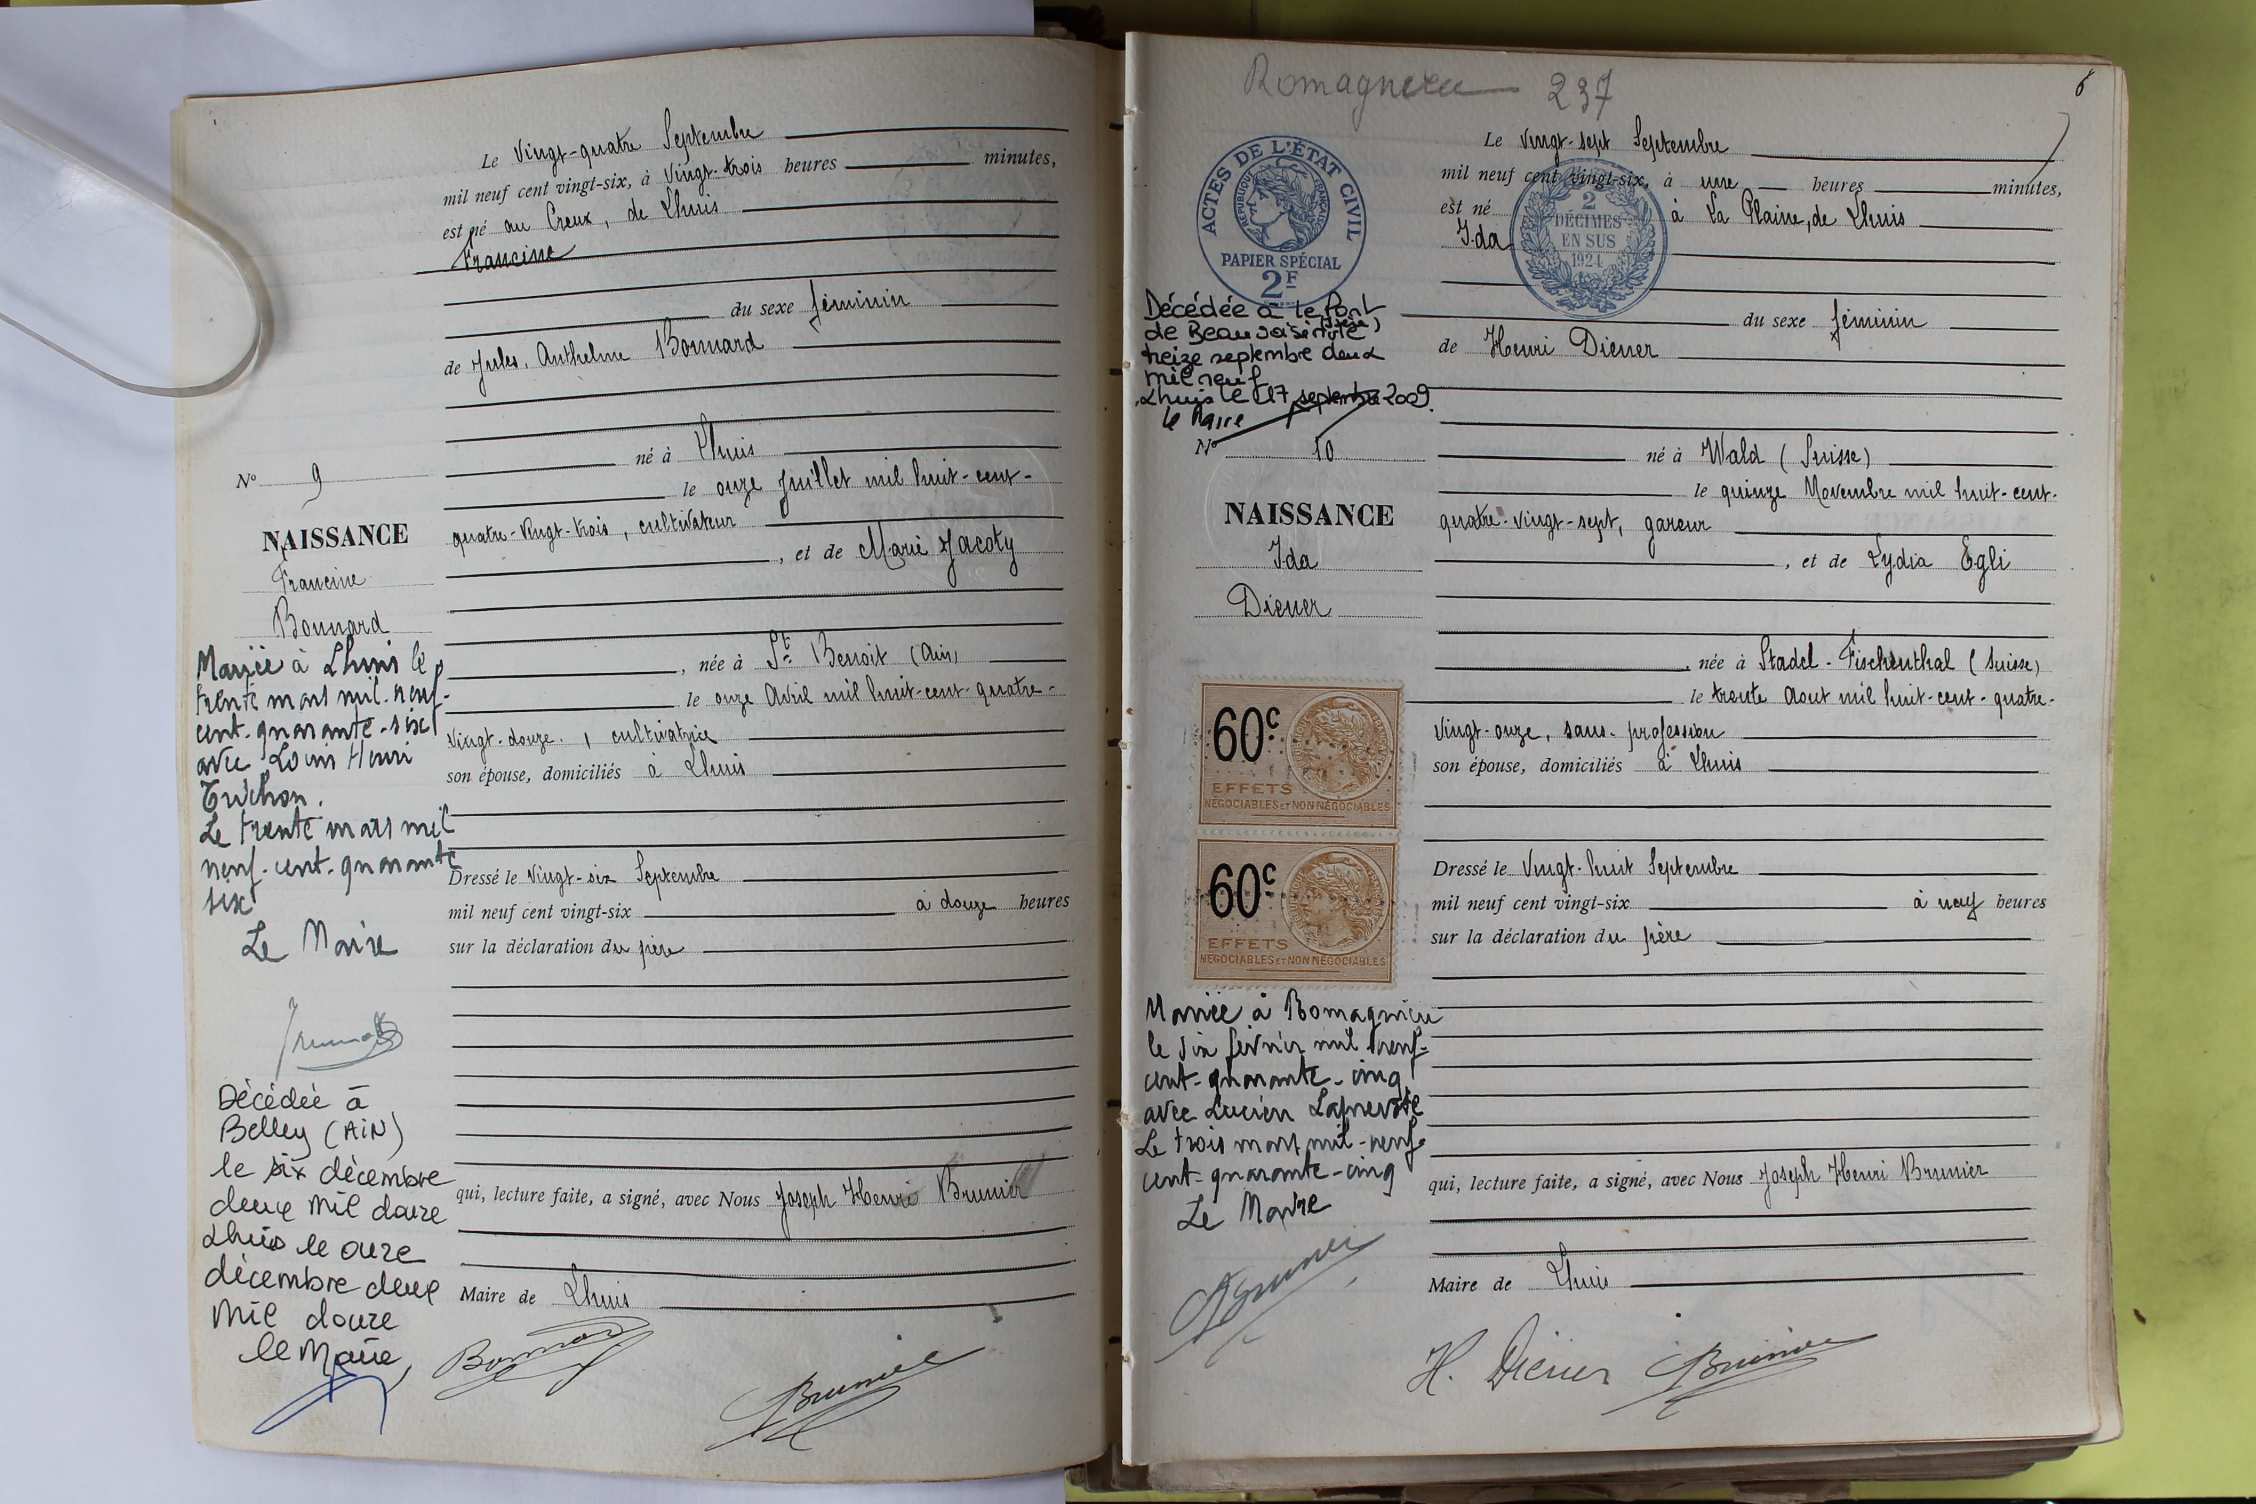 Le Vingt-quatre Septembre
mil neuf cent vingt-six, à Vingt-trois heures minutes,
est né au Creux, de Lhuis
Francine
du sexe féminin
de Jules, Anthelme Bonnard
né à Lhuis
le onze Juillet mil huit-cent-
quatre-Vingt-trois, cultivateur
, et de Marie Jacoty
, née à St Benoit (Ain)
le onze Avril mil huit-cent-quatre-
Vingt-douze, cultivatrice
son épouse, domiciliés à Lhuis
Dressé le Vingt-six Septembre
mil neuf cent vingt-six à douze heures
sur la déclaration du père
qui, lecture faite, a signé, avec Nous Joseph Henri Brunier
Maire de Lhuis
Bonnard
Brunier
No 9
NAISSANCE
Francine
Bonnard
Mariée à Lhuis le
trente mars mil-neuf-
cent-quarante-six
avec Louis Henri
Truchon.
Le trente mars mil
neuf-cent-quarante
six
Le Maire
Décédée à
Belley (AIN)
le six décembre
deux mil douze
Lhuis le onze
décembre deux
mil douze
le Maire
Romagnieu 237
6
ACTES DE L'ÉTAT CIVIL
RÉPUBLIQUE FRANÇAISE
PAPIER SPÉCIAL
2F
2
DÉCIMES
EN SUS
1924
Le Vingt-sept Septembre
mil neuf cent vingt-six, à une heures minutes,
est né à La Plaine, de Lhuis
Ida
du sexe féminin
de Henri Diener
né à Wald (Suisse)
le quinze Novembre mil huit-cent-
quatre-vingt-sept, gareur
, et de Lydia Egli
, née à Stadel-Fischenthal (Suisse)
le trente Aout mil huit-cent-quatre-
Vingt-onze, sans profession
son épouse, domiciliés à Lhuis
Dressé le Vingt-huit Septembre
mil neuf cent vingt-six à neuf heures
sur la déclaration du père
qui, lecture faite, a signé, avec Nous Joseph Henri Brunier
Maire de Lhuis
H. Diener Brunier
Décédée à le Pont
de Beauvoisin (Isère) le
treize septembre deux
mil neuf
Lhuis le 17 septembre 2009.
le Maire
No 10
NAISSANCE
Ida
Diener
60c
EFFETS
NÉGOCIABLES ET NON NÉGOCIABLES
60c
EFFETS
NÉGOCIABLES ET NON NÉGOCIABLES
Mariée à Romagnieu
le six février mil neuf-
cent-quarante-cinq
avec Lucien
Le trois mars mil-neuf-
cent-quarante-cinq
Le Maire
Brunier